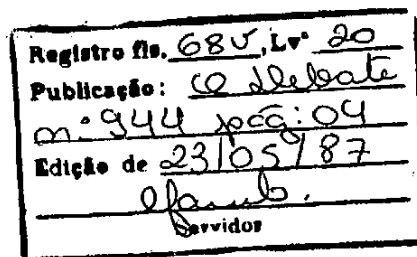 Registro fls. 68V, Lvº 20
Publicação: O Debate
nº 944 pág: 04
Edição de 23/05/87
Servidor